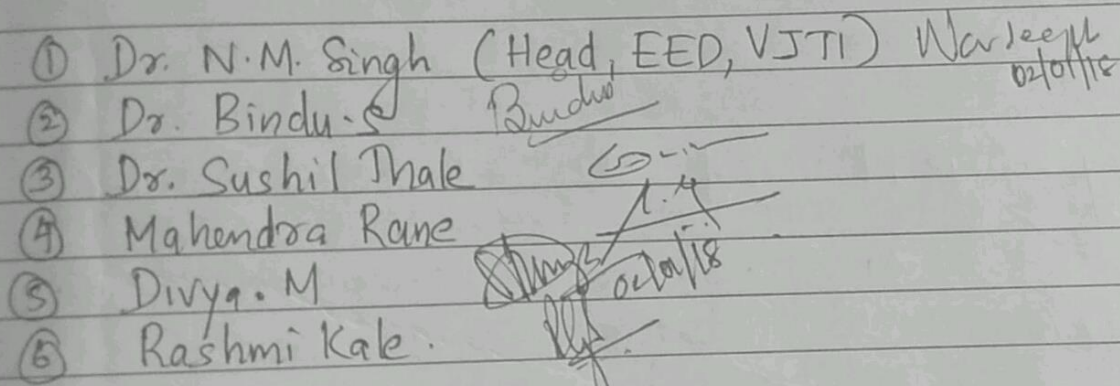 ① Dr. N.M. Singh (Head, EED, VJTI) 02/01/18
② Dr. Bindu.S Bindu
③ Dr. Sushil Thale
④ Mahendra Rane
⑤ Divya.M 02/01/18
⑥ Rashmi Kale.